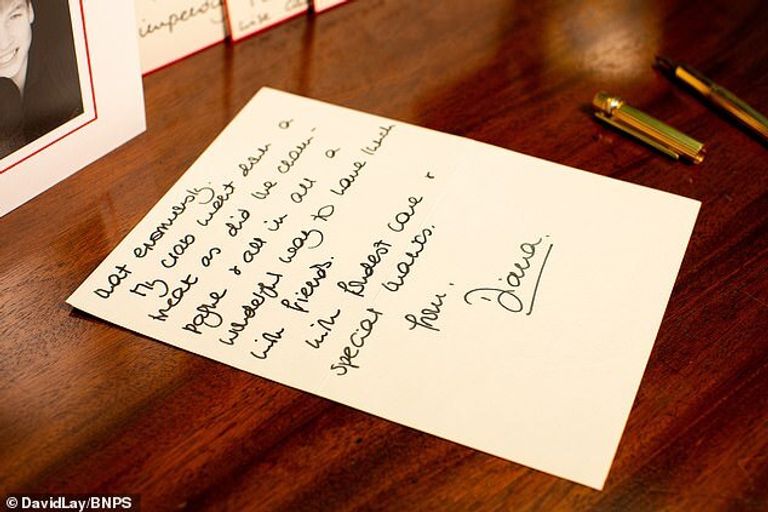 that enormously.
My crab went down a
treat as did the cham-
pagne & all in all a
wonderful way to have lunch
with friends.
with fondest love &
special thanks.
from.
Diana.
© DavidLay/BNPS